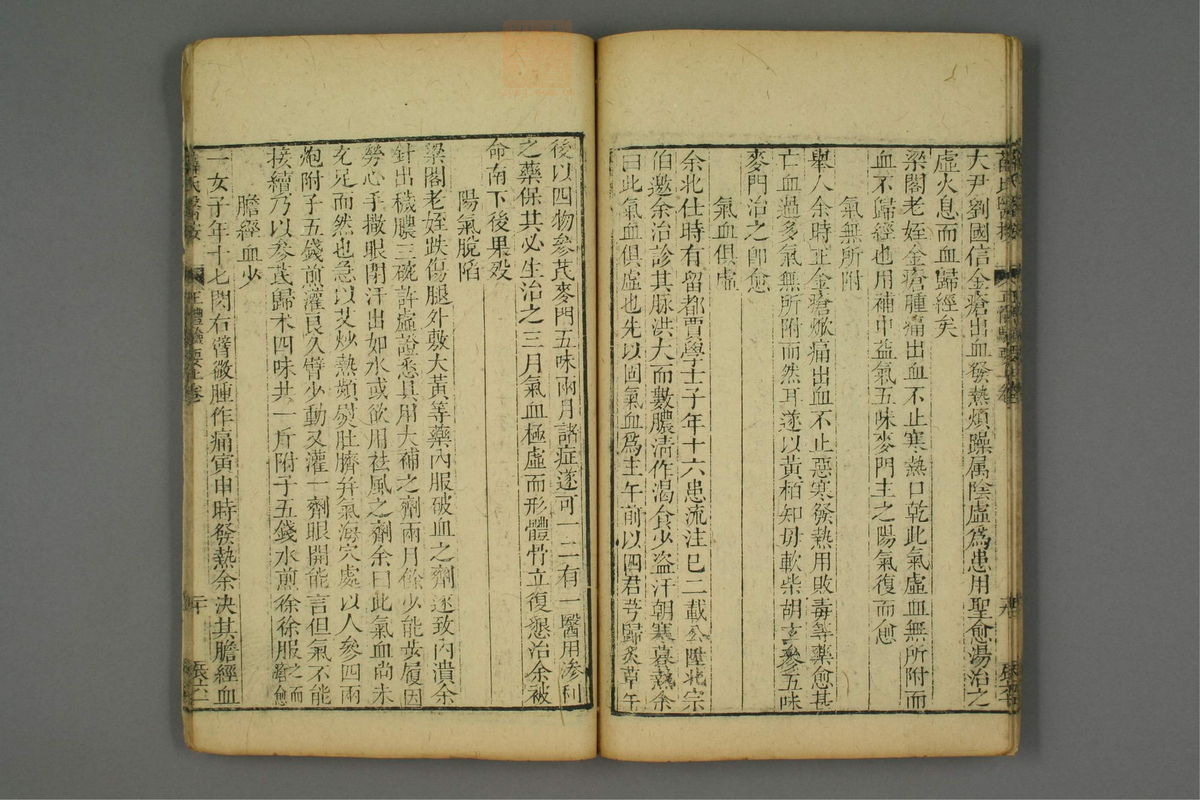 大尹劉國信金瘡出血發熱煩躁屬陰虛為患用聖愈湯治之
虛火息而血歸經矣
梁閣老姪金瘡腫痛出血不止寒熱口乾此氣虛血無所附而
血不歸經也用補中益氣五味麥門主之陽氣復而愈
氣無所附
舉人余時正金瘡焮痛出血不止惡寒發熱用敗毒等藥愈甚
亡血過多氣無所附而然耳遂以黃柏知母軟柴胡玄參五味
麥門治之即愈
氣血俱虛
余北仕時有留都賈學士子年十六患流注巳二載公陞北宗
伯邀余治診其脉洪大而數膿清作渴食少盜汗朝寒暮熱余
曰此氣血俱虛也先以固氣血爲主午前以四君芎歸炙草午
後以四物參芪麥門五味兩月諸症遂可一二有一醫用滲利
之藥保其必生治之三月氣血極虛而形體骨立復懇治余被
命南下後果歿
陽氣脫陷
梁閣老姪跌傷腿外敷大黃等藥內服破血之劑遂致內潰余
針出穢膿三碗許虛證悉具用大補之劑兩月餘少能步履因
勞心手撒眼閉汗出如水或欲用祛風之劑余曰此氣血尚未
充足而然也急以艾炒熱頻熨肚臍并氣海穴處以人參四兩
炮附子五錢煎灌良久臂少動又灌一劑眼開能言但氣不能
接續乃以參芪歸术四味共一斤附子五錢水煎徐徐服之而愈
膽經血少
一女子年十七閃右臂微腫作痛寅申時發熱余決其膽經血
薛氏醫按
正體類要上卷
二十